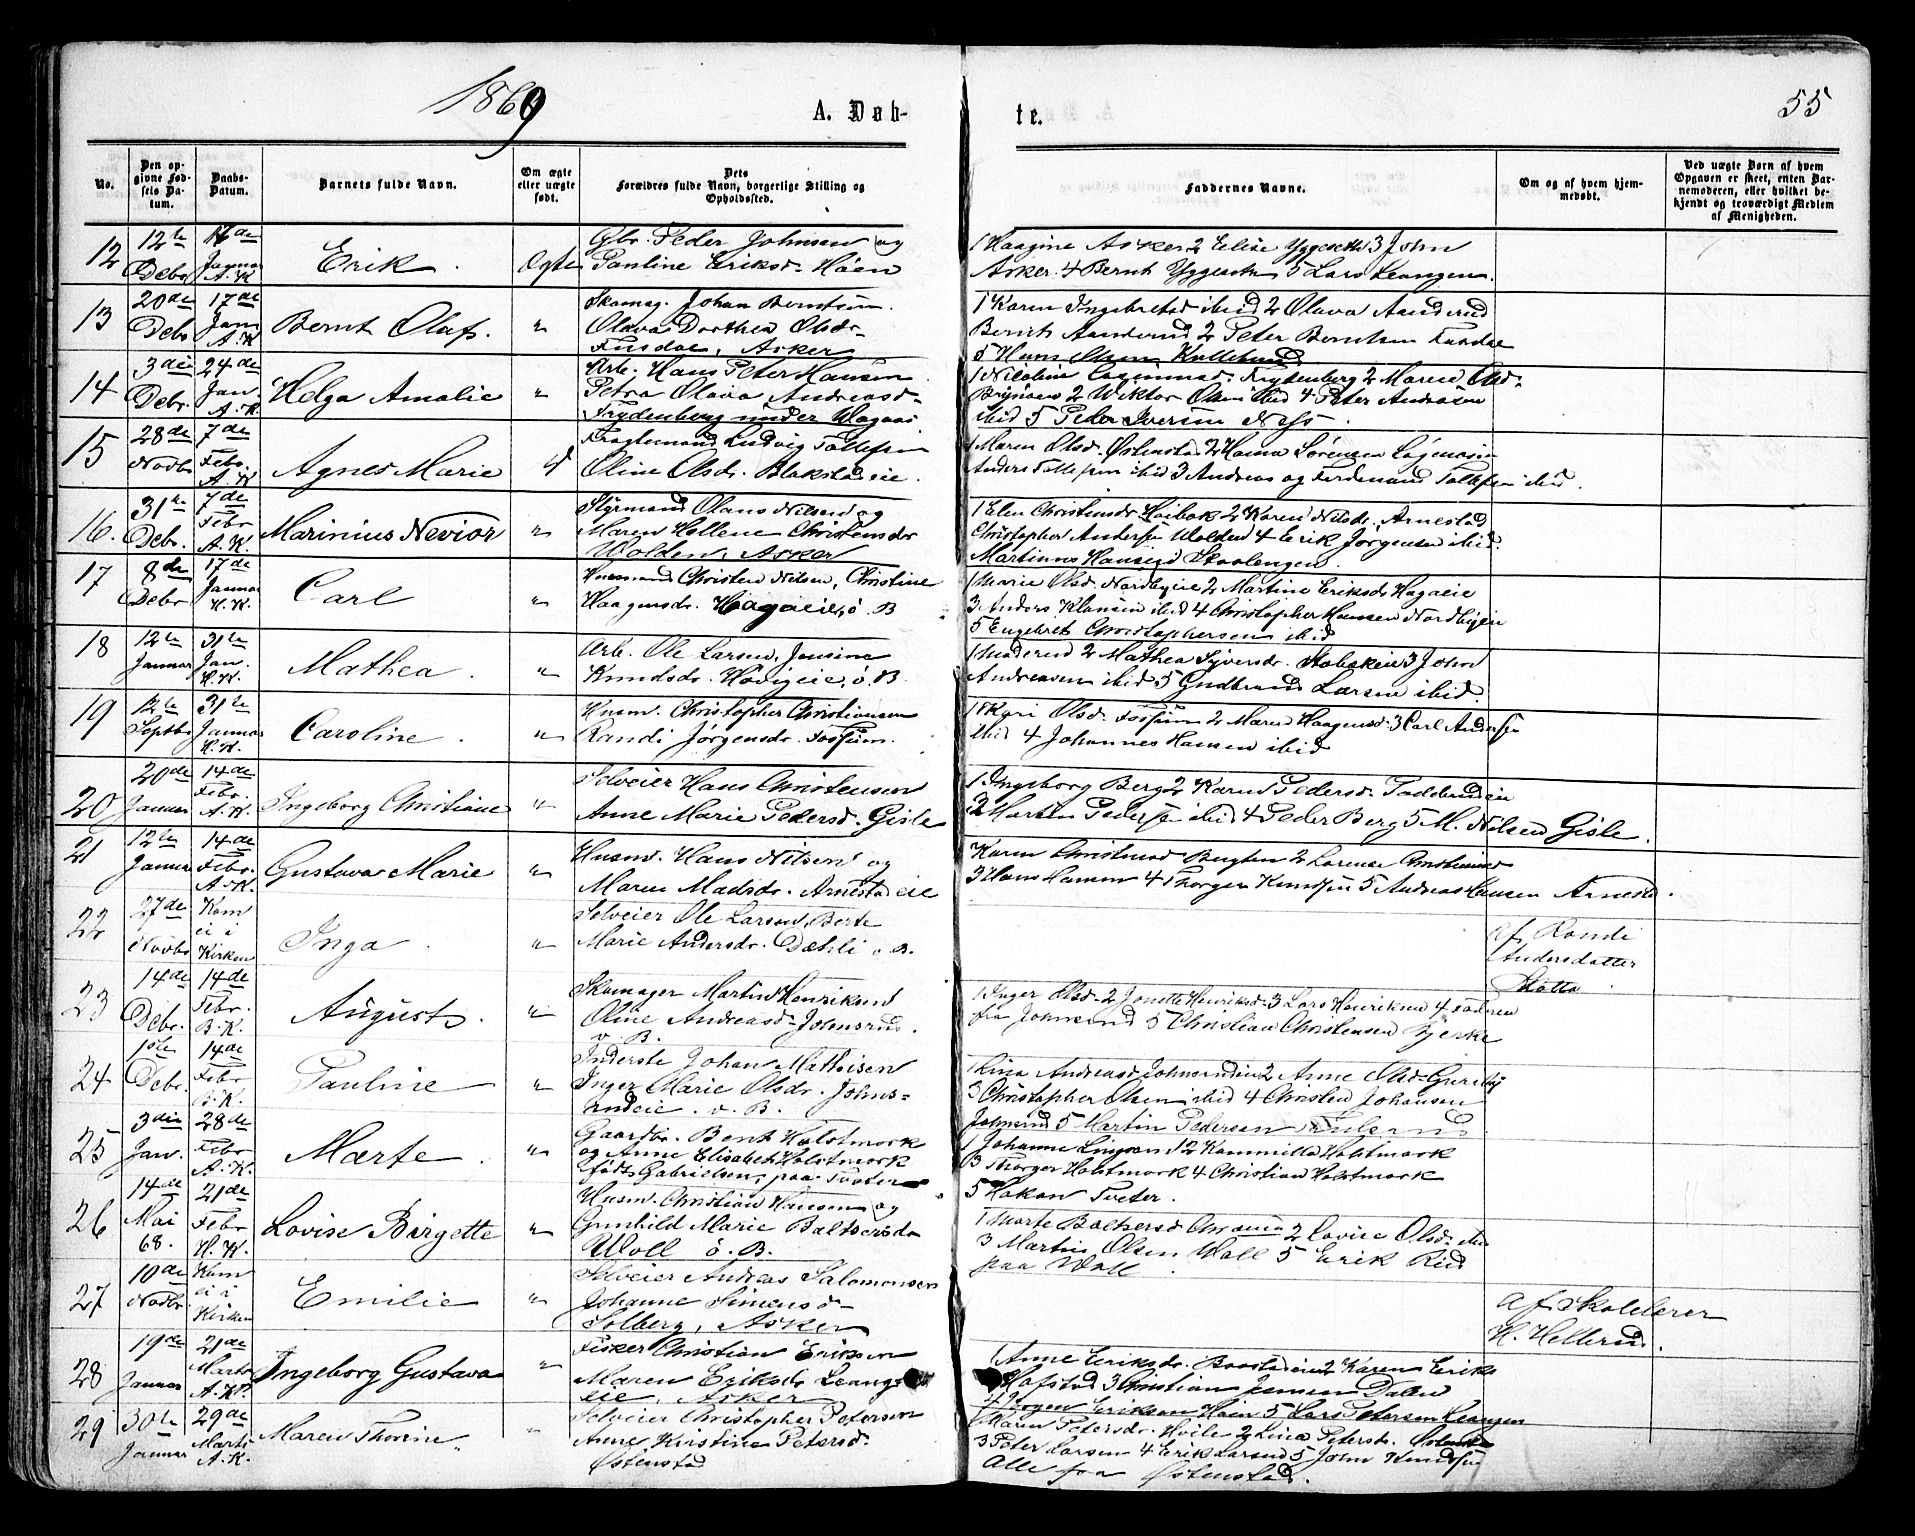 1869
A. Døb-
te.
55
No.
Den opgivne Fødsels Datum.
Daabs-Datum.
Barnets fulde Navn.
Om ægte eller uægte født.
Dets Forældres fulde Navn, borgerlige Stilling og Opholdssted.
Faddernes Navne.
Om og af hvem hjemmedøbt.
Ved uægte Barn af hvem Opgaven er skeet, enten Barnemoderen, eller hvilket bekjendt og troværdigt Medlem af Menigheden.
12
12te Debr
Januar A. K
Erik.
Ægte
Gbr. Peder Johnsen og
Pauline Eriksd. Høen
1 Haagine Asker 2 Elise Yggeseth 3 John
Asker. 4 Bernt Yggeseth 5 Lars Leangen.
13
20de Debr
17de Jan A. K
Bernt Olaf.
"
Skomag. Johan Berntsen
Olava Dorthea Olsdr.
Fusdal, Asker
1 Karen Ingebretsd ibid 2 Olava Aanderud
Bernt Aanderud 2 Peter Berntsen Fusdal
5 Hans Olsen
14
3die Debr.
24de Jan. A. K
Helga Amalie
"
Arb. Hans Peter Hansen
Petra Olava Andreasd.
Frydenborg under
Frydenberg 2 Maren Olsd.
2 Wiktor Olsen ibid 4 Peter Andräsen
ibid 5 Peder Iversen Næss.
15
28de Novbr
7de Febr. A. K
Agnes Marie
Ludvig Tollefsen
Oline Olsdr. Blakstadeie.
1 Maren Olsd. Østenstad 2 Hanna Sørensen
Anders Tollefsen ibid 3 Andreas og Ferdinand Tollefsen ibid.
16.
31te Debr.
7de Febr A. K.
Marinius Nevior
"
Styrmand Olaus Nilsen og
Maren Hellene Christensdr
Wolden, Asker
1 Elen Christensdr Høibak 2 Karen Nilsdr. Arnestad
Christopher Andersen Wolden 4 Erik Jørgensen ibid.
Martinus Hansen Skoolengen.
17
8de Debr
17de Januar H. K.
Carl
"
Husmand Christen Nilsen, Christine
Haagensdr. Hagaeie, ø. B
1 Marie Olsd. Nordbyeie 2 Martine Eriksdr Hagaeie
3 Anders Klausen ibid 4 Christopher Hansen Nordbyeie
5 Engebret Christophersen ibid
18
12te Januar
31te Jan. H. K.
Mathea.
"
Arb. Ole Larsen, Jensine
Knudsdr. Høvigeie, ø. B.
1 Moderen 2 Mathea Syversdr. Stabekeie 3 John
Andreasen ibid 5 Gudbrand Larsen ibid.
19
12te Septbr
31te Januar H. K.
Caroline.
"
Husm. Christopher Christiansen
Randi Jørgensdr. Fossum.
1 Kari Olsd. Fossum 2 Maren Haagensd. 3 Carl Andersen
ibid 4 Johannes Hansen ibid
20
20de Januar
14de Febr. A. K.
Ingeborg Christiane
"
Selveier Hans Christensen
Anne Marie Pedersd. Gisle
1 Ingeborg Berg 2 Karen Pedersd.
3 Martin Pedersen ibid 4 Peder Berg 5 M. Nilsen Gisle.
21
12te Januar
14de Febr. A. K.
Gustava Marie
"
Husm. Hans Nilsen og
Maren Madsdr. Arnestadeie
Karen Christensd
3 Hans Hansen 4 Thorger Knudsen 5 Andreas Hansen Arnestd.
22
27de Novbr
Kom ei i Kirken
Inga.
"
Selveier Ole Larsen, Berte
Marie Andersdr. Dæhli v. B.
af Randi
Andersdatter
23
14de Debr.
14de Febr. B. K.
August.
"
Skomager Martin Henriksen
Oline Andreasd. Johnsrud.
v. B.
1 Inger Olsd. 2 Jonette Henriksd. 3 Lars Henriksen 4 Faderen
fra Johnsrud 5 Christian Christensen Bjerke
24
1ste Debr.
14de Febr B. K.
Pauline
"
Inderste Johan Mathisen
Inger Marie Olsdr. Johns-
rudeie. v. B.
1 Lina Andreasd. Johnsrudeie 2 Anne Olsd.
3 Christopher Olsen ibid 4 Christen Johansen
Johnsrud 5 Martin Pedersen
25
3die Jan.
28de Febr A. K.
Marte.
"
Gaardbr. Bent Holstmork
og Anne Elisabeth Holstmork
født Gabrielsen, paa Tveter
1 Johanne 2 Kammilla Holstmork
3 Thorger Holstmork 4 Christian Holstmork
5 Hakon Tveter.
26
14de Mai 68.
21de Febr H. K.
Lovise Birgette
"
Husm. Christian Hansen og
Gunhild Marie Baltsersdr
Woll ø. B.
1 Marte Baltsersd 2 Lovise Olsdr.
3 Martin Olsen Woll 5 Erik Rud
paa Woll.
27
10de Novbr.
Kom ei i Kirken
Emilie
"
Selveier Andreas Salomonsen
Johanne Simensd.
Solberg, Asker
af Skolelærer
H. Hellerud.
28
19de Januar
21de Marts A. K.
Ingeborg Gustava
"
Fisker Christian Eriksen
Maren Eriksdr Leang-
eie, Asker
Anne Eriksdr. 2 Karen Eriks
Hofstad 3 Christian Jensen Dalen
4 Jørgen Eriksen Høin 5 Lars Petersen Leangen
29
30te Januar
29de Marts A. K.
Maren Thorine
"
Selveier Christopher Petersen
Anne Kirstine Petersd.
Østenstad
Maren Petersdr. Hvile 2 Lina Petersdr. Østenst
3 Peter Larsen 4 Erik Larsen 5 John Knudsen
Alle fra Østenstad.